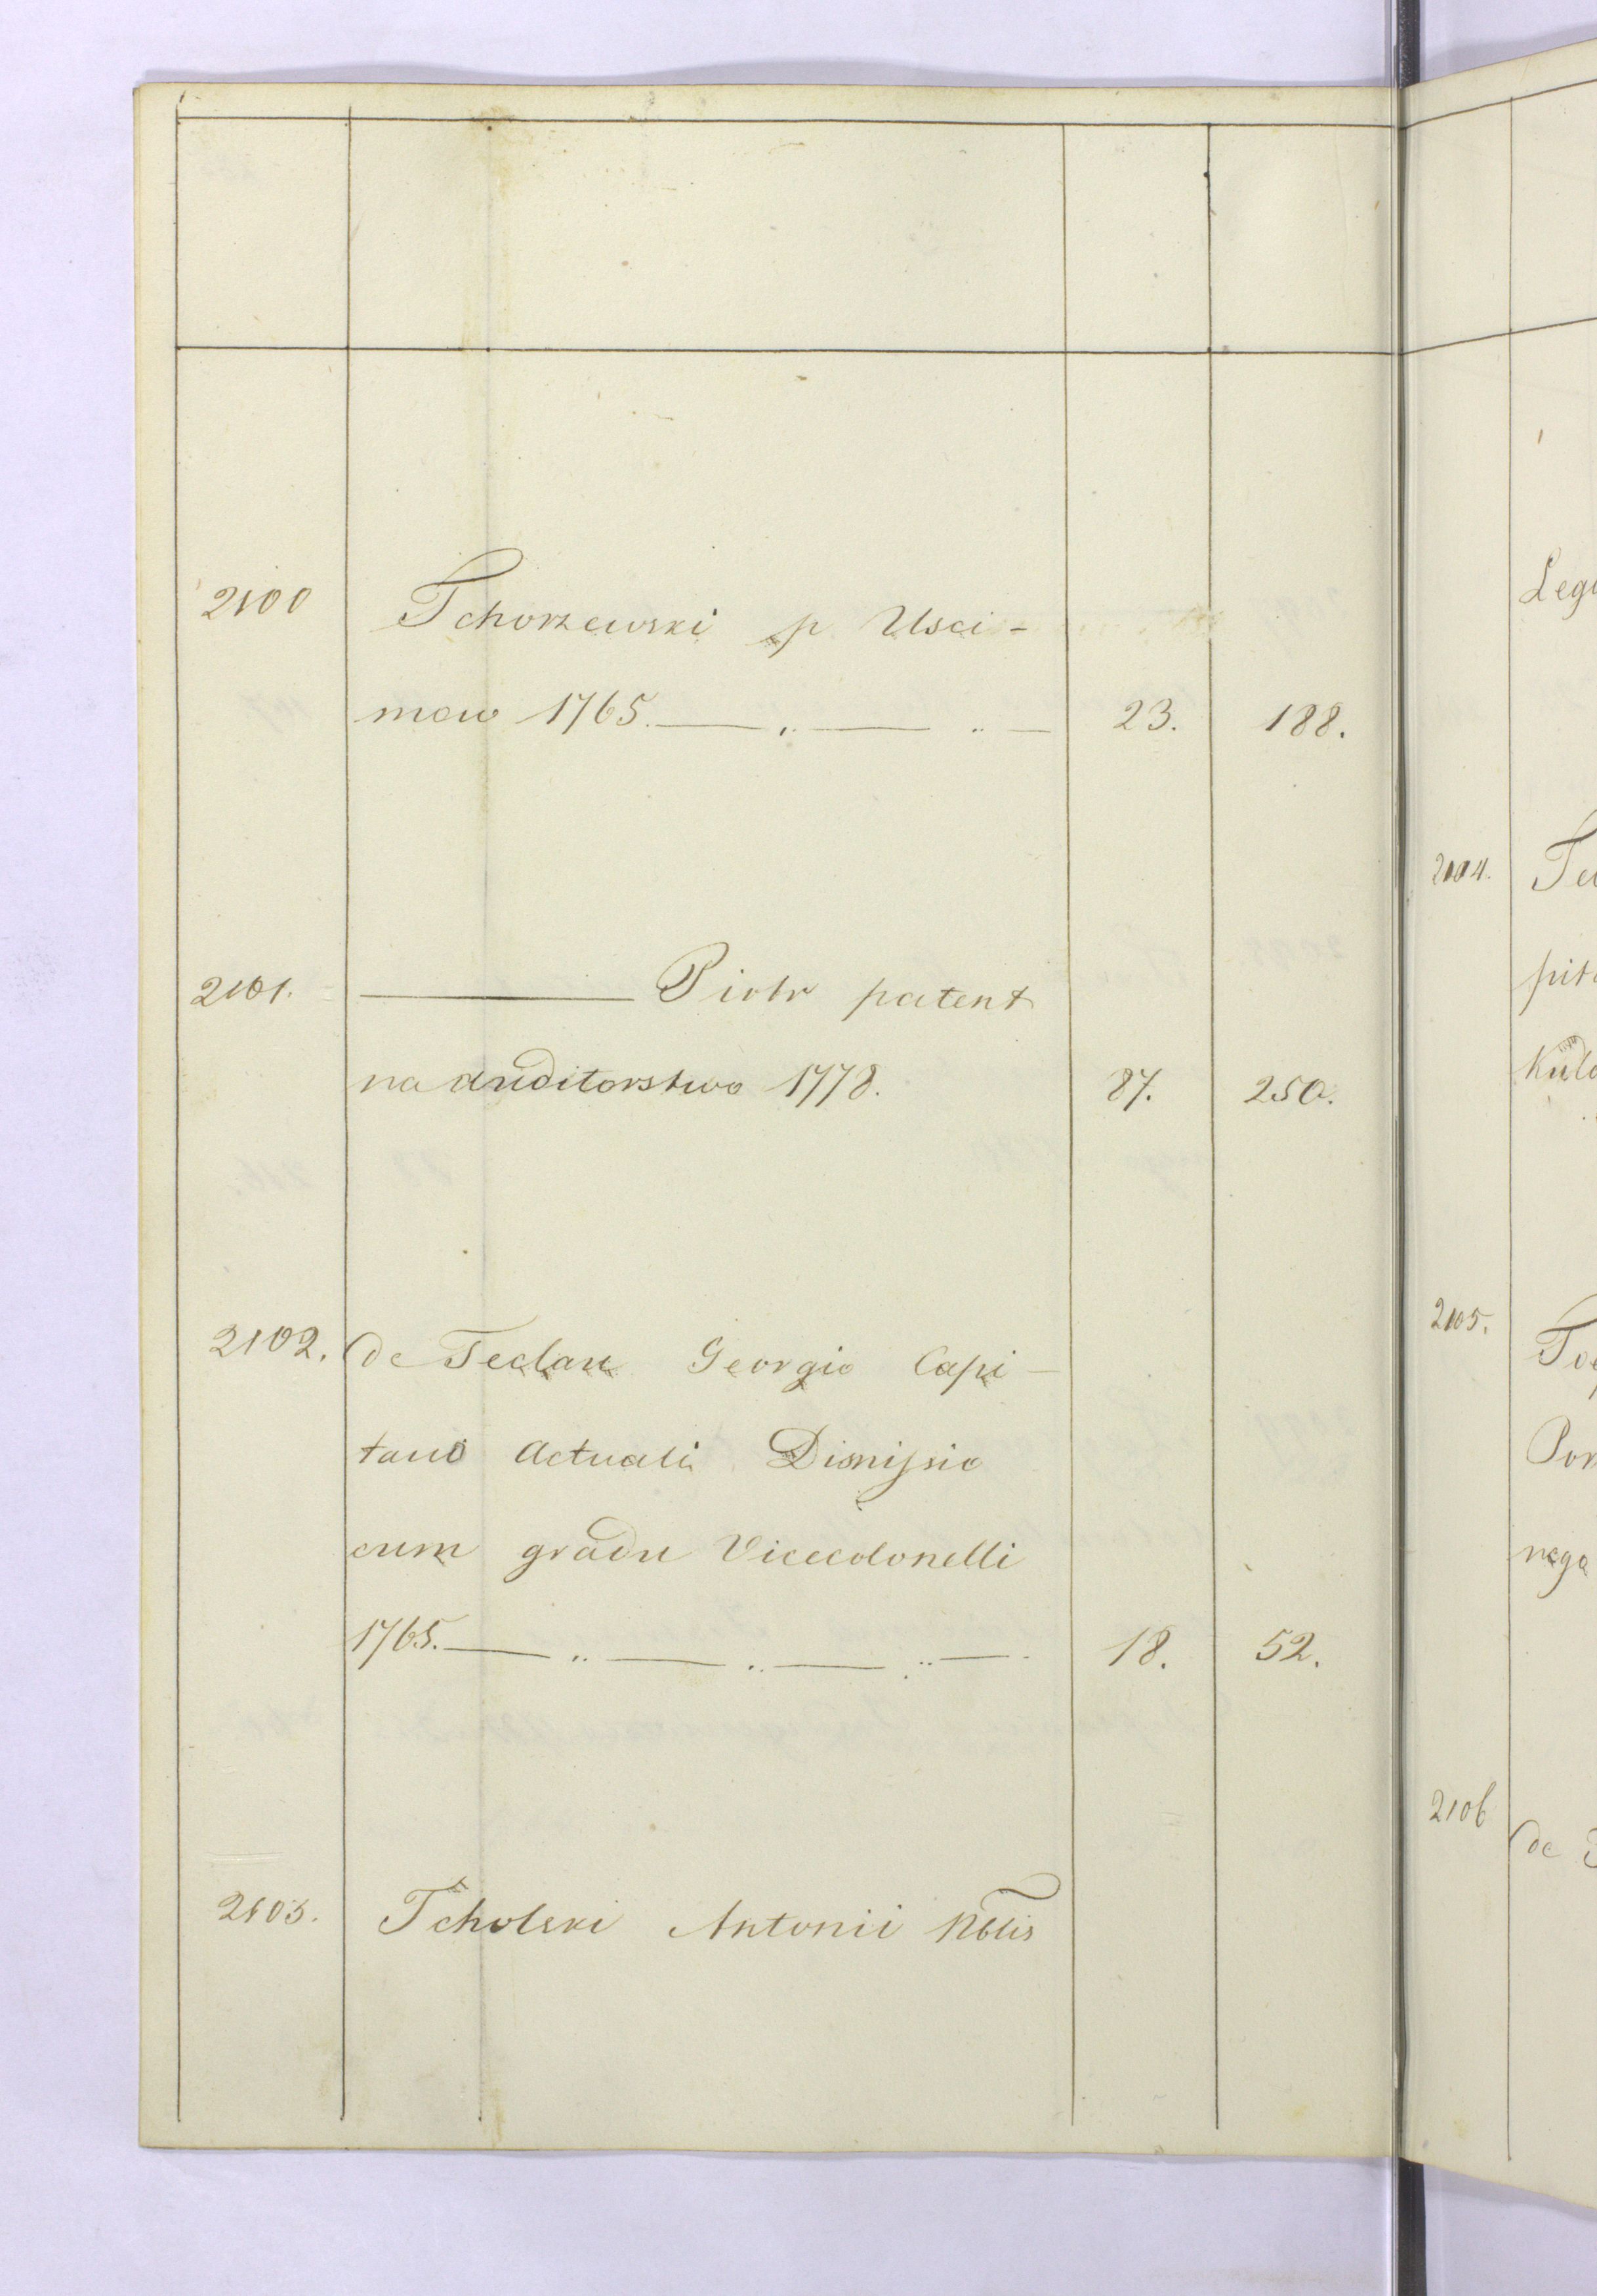 2100 Tchorzewski p Usci-
mow 1765. — „ — „ — 23. 188.
2101. ——— Piotr patent
na auditorstwo 1778. 87. 250.
2102. de Teclau Georgio Capi-
tano Actuali Dimissio
cum gradu Vicecolonelli
1765. — „ — „ — „ — 18. 52.
2103. Tcholski Antonii Nblis
Legi
2104. Te
pit
Kul
2105. To
Por
nego
2106 de